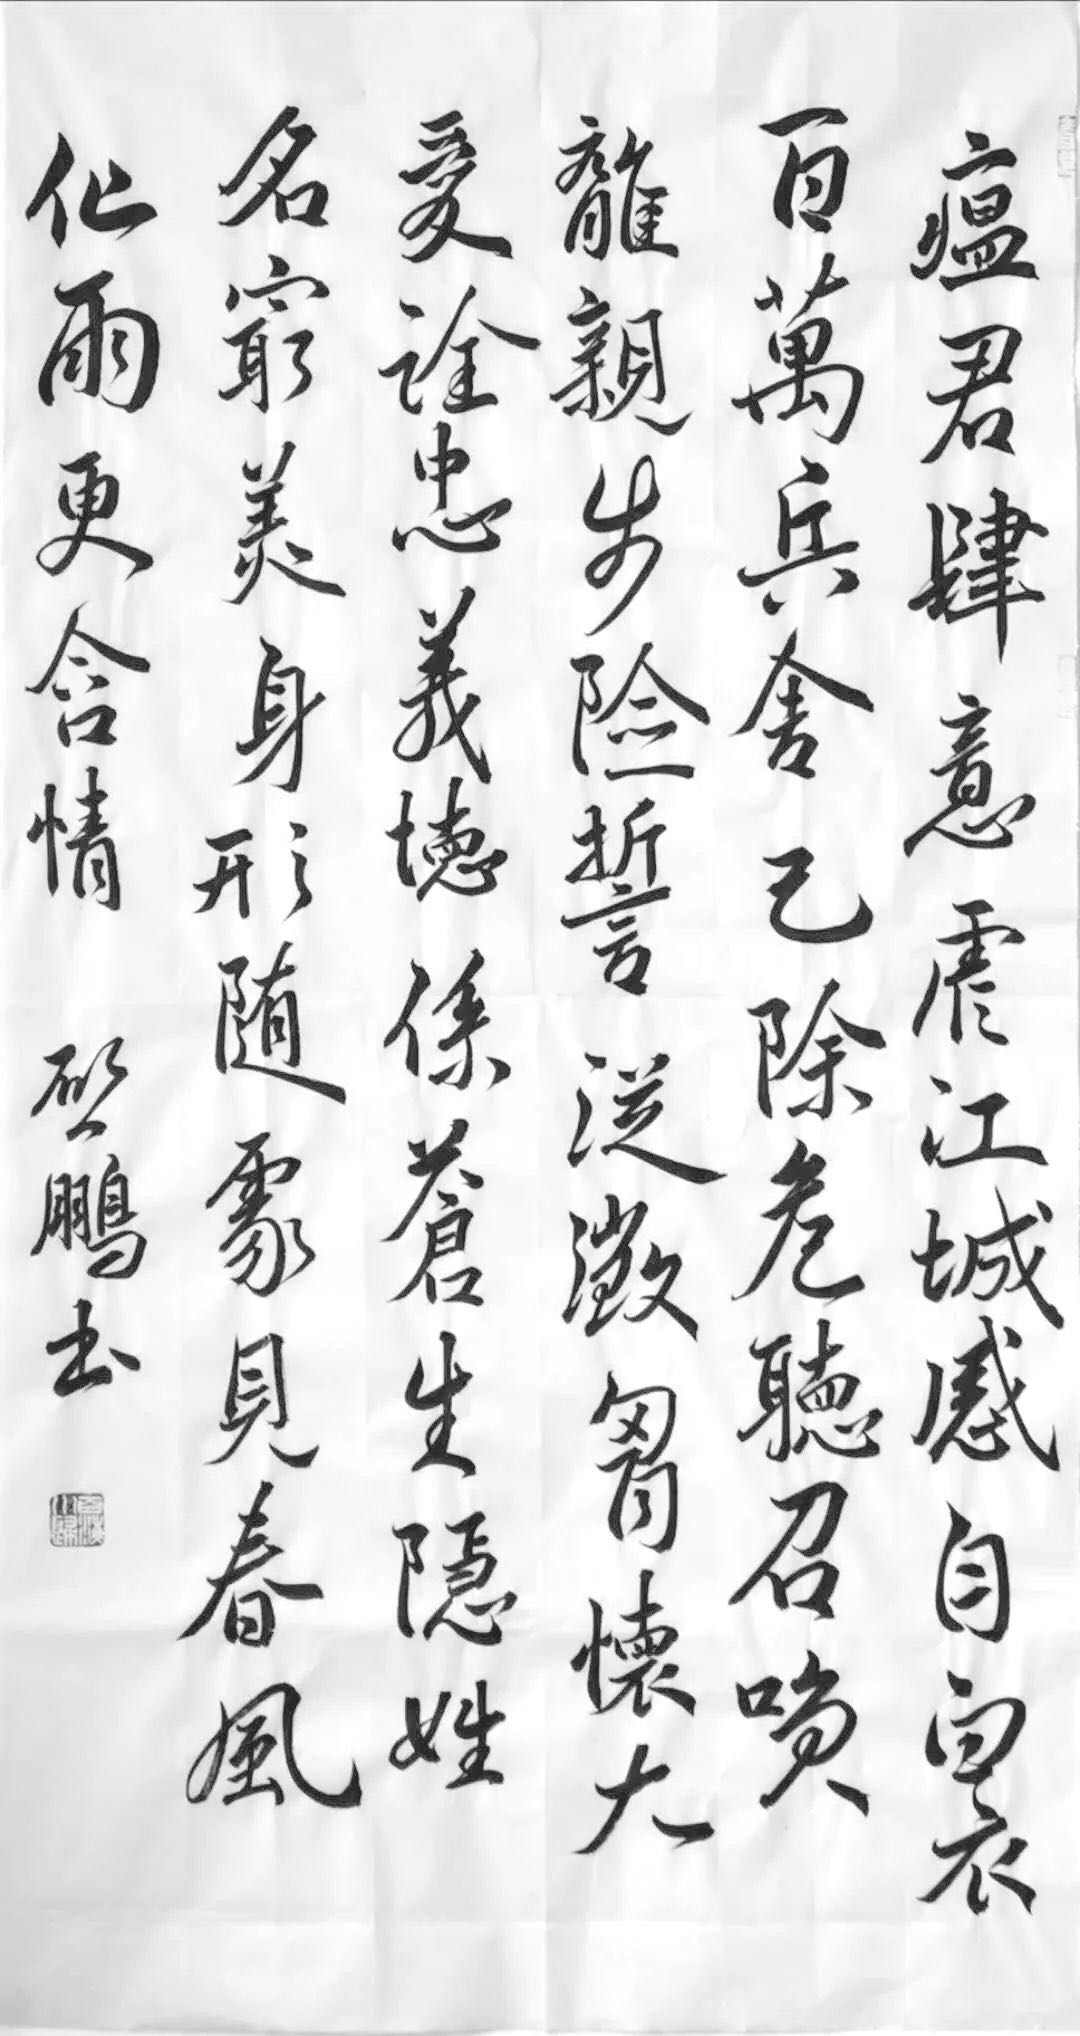 瘟君肆意虐江城感自白衣
百萬兵舍己除危聽召喚
離親步險誓從徵胷懷大
愛詮忠義德係蒼生隱姓
名窮美身形随處見春風
化雨更含情 啓鵬书